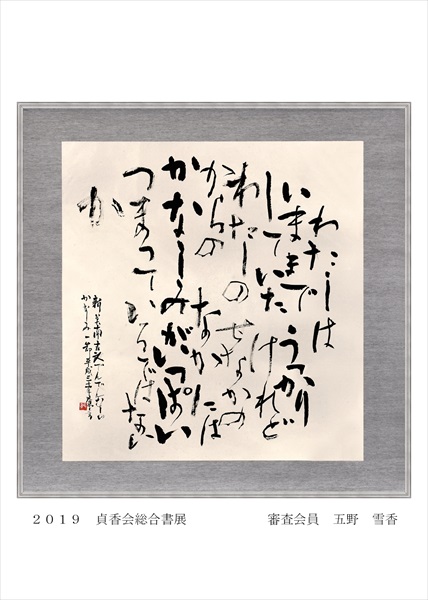 わたしは
いままで うっかり
していた けれど
わたしの せなかの
からの なかには
かなしみがいっぱい
つまっているではない
か
新美南吉 でんでんむしの
かなしみ 一節 平成三十
2019 貞香会総合書展
審査会員 五野 雪香